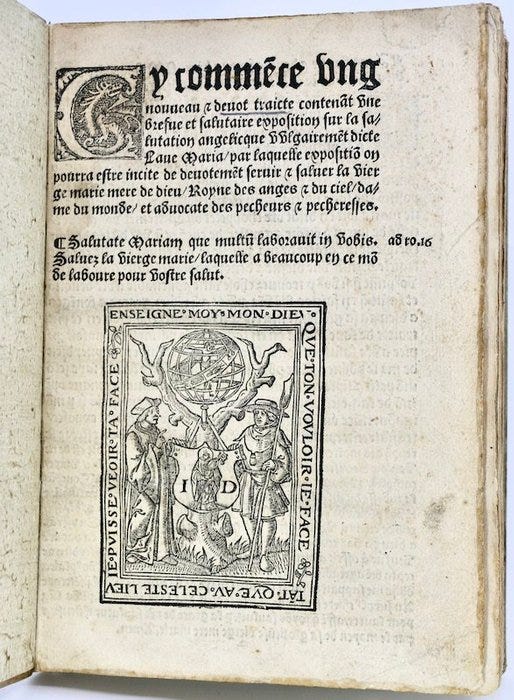 Cy commēce vng
nouueau ⁊ deuot traicte contenāt vne
brefue et salutaire exposition sur la sa-
lutation angelicque vvlgairemēt dicte
Laue Maria/par laquelle expositiō on
pourra estre incite de deuotemēt seruir ⁊ saluer la vier
ge marie mere de dieu/Royne des anges ⁊ du ciel/da-
me du monde/et aduocate des pecheurs ⁊ pecheresses.
¶ Salutate Mariam que multū laborauit in vobis. ad ro.16
Saluez la vierge marie/laquelle a beaucoup en ce mō
de laboure pour vostre salut.
ENSEIGNE·MOY·MON·DIEV·
QVE·TON·VOVLOIR·IE·FACE
TĀT·QVE·AV·CELESTE·LIEV
IE·PVISSE·VEOIR·TA·FACE
I D